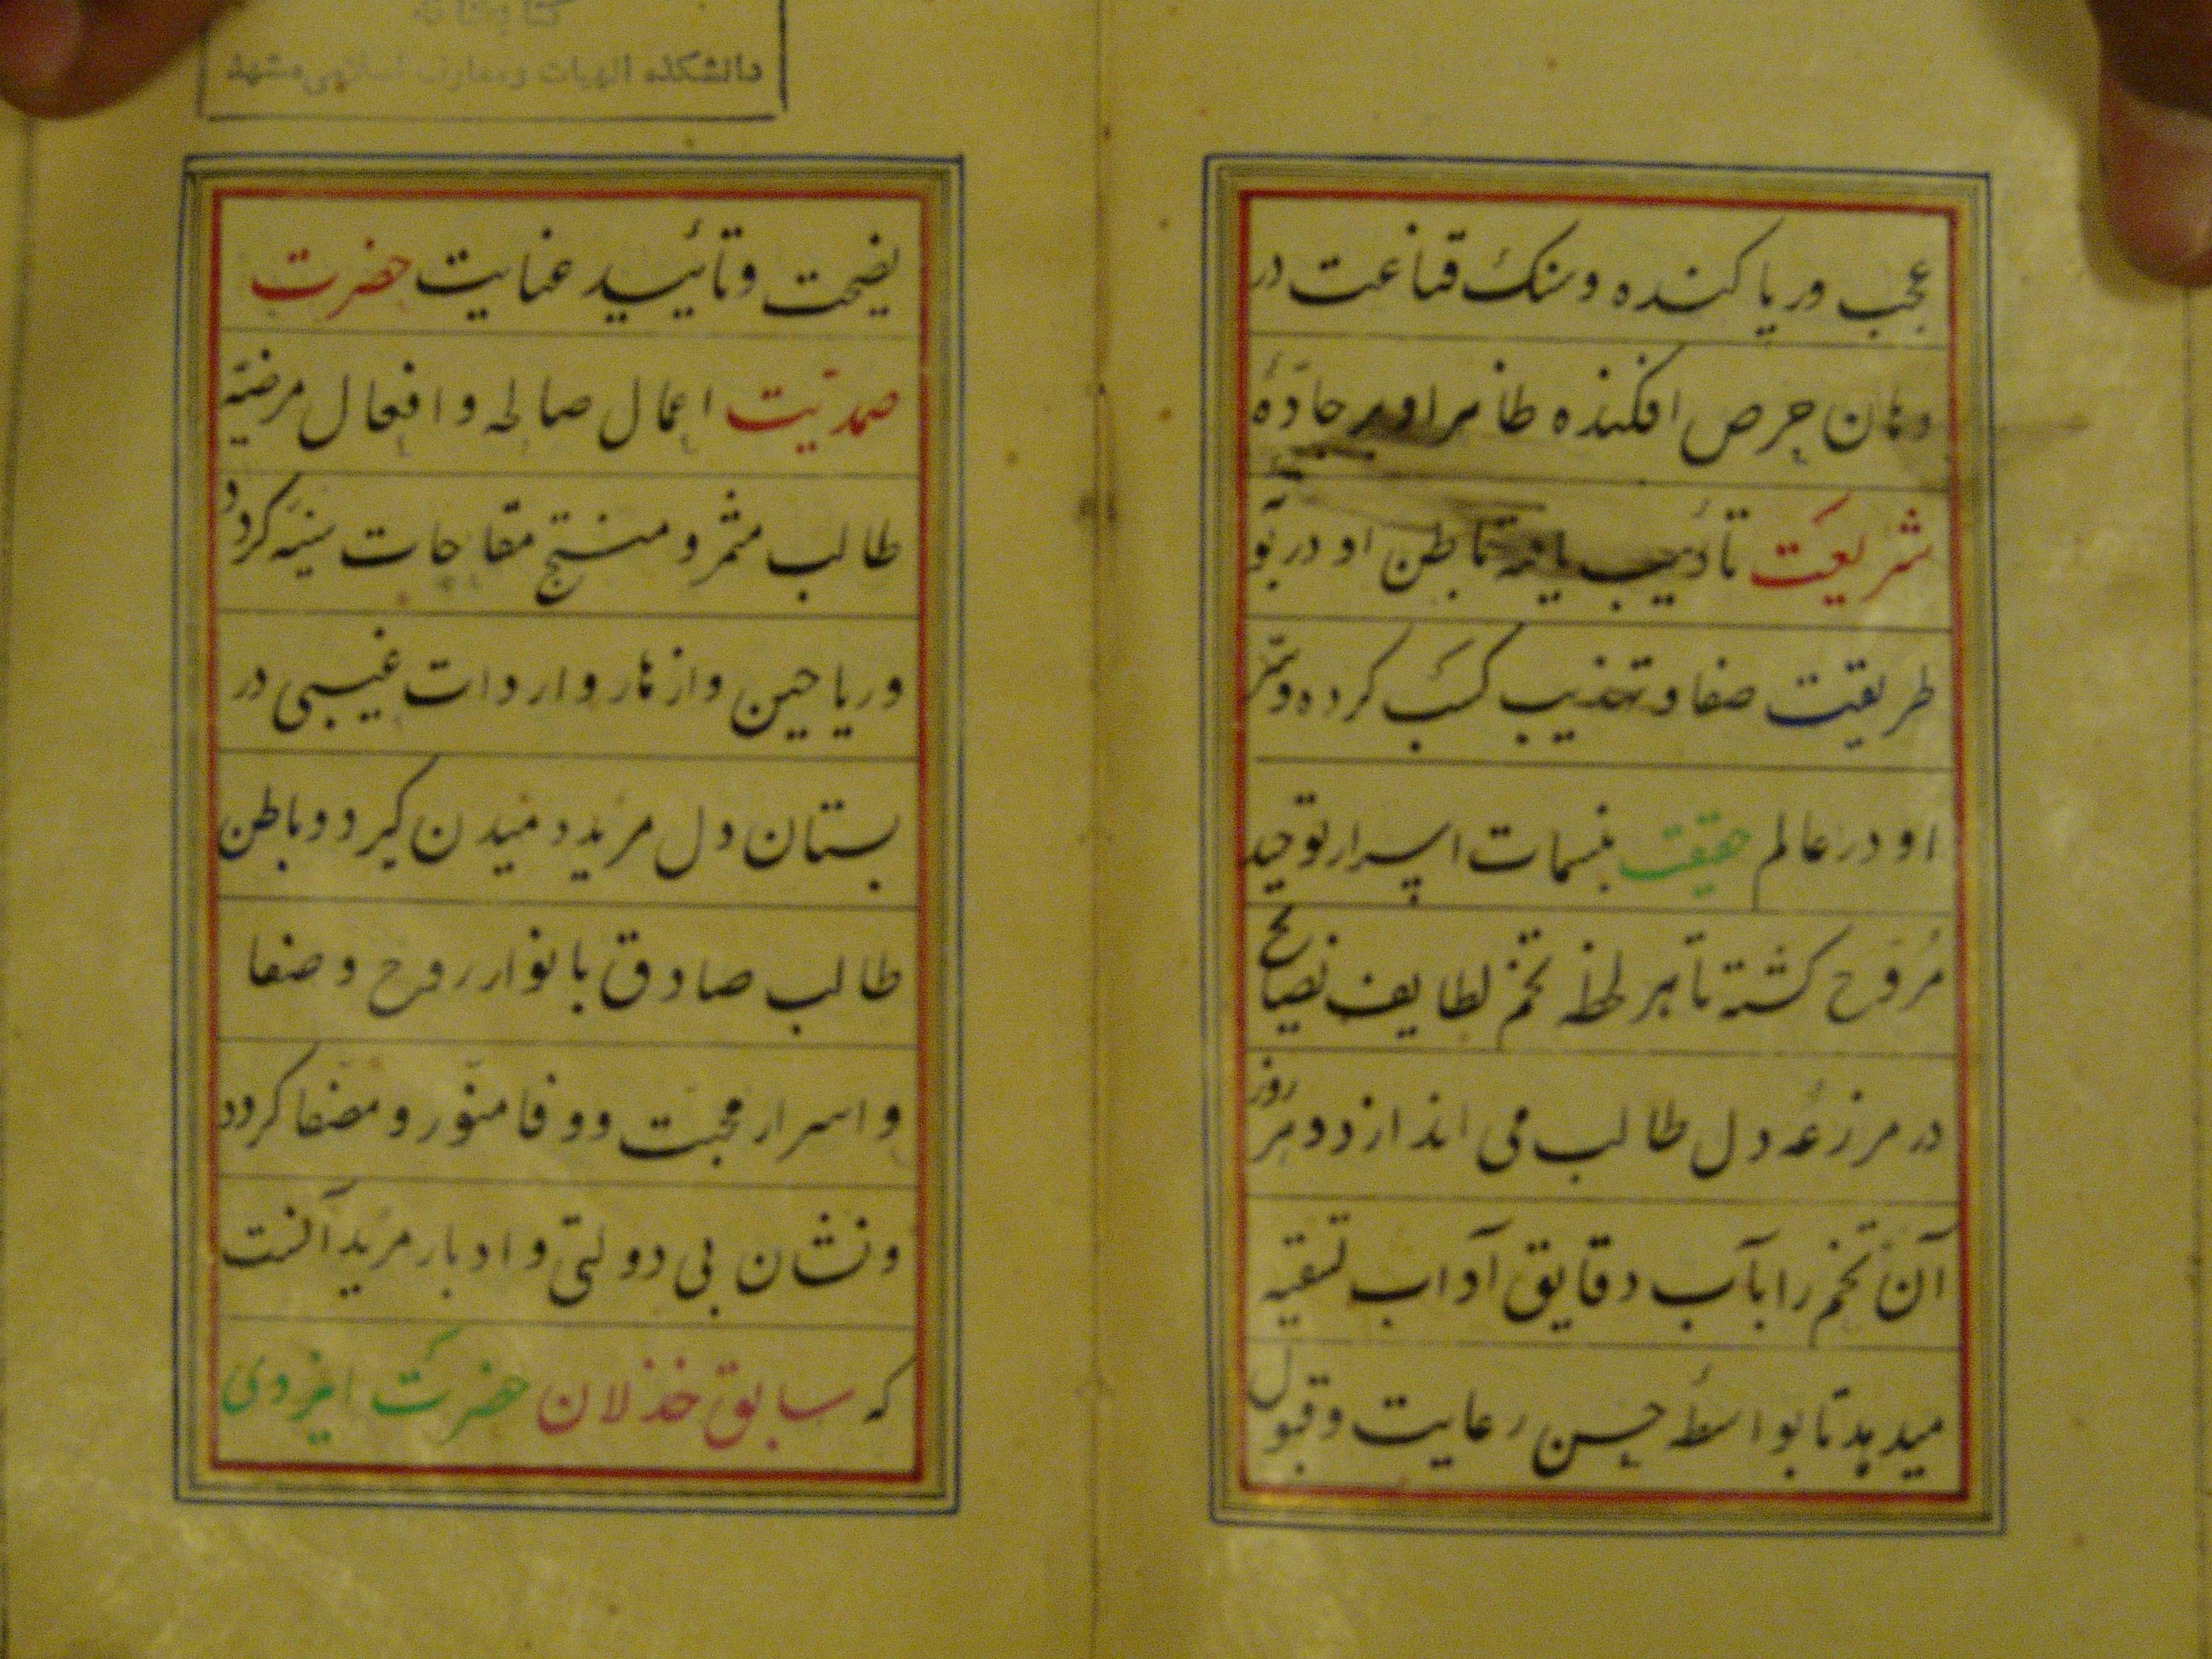 عجب و ریا کنده و سنک قناعت در
دهان حرص افکنده ظاهر او بر جادّهٔ
شریعت تأدیب یافته باطن او در
طریقت صفا و تهذیب کسب کرده و سرّ
او در عالم حقیقت بنسمات اسرار توحید
مُروّح کشته تا هر لحظه تخم لطایف نصایح
در مزرعهٔ دل طالب می اندازد و هر روز
آن تخم را بآب دقایق آداب تسقیه
میدهد تا بواسطهٔ حسن رعایت و قبول
کتابخانه
دانشکده الهیات و معارف اسلامی مشهد
نصیحت و تأیید عنایت حضرت
صمدیّت اعمال صالحه و افعال مرضیّه
طالب مثمر و منتج مقاجات سنیّه کردد
و ریاحین و ازهار واردات غیبی در
بستان دل مرید دمیدن کیرد و باطن
طالب صادق بانوار روح و صفا
و اسرار محبت و وفا منوّر و مصفا کردد
و نشان بی دولتی و ادبار مرید آنست
که سابق خذلان حضرت ایزدی